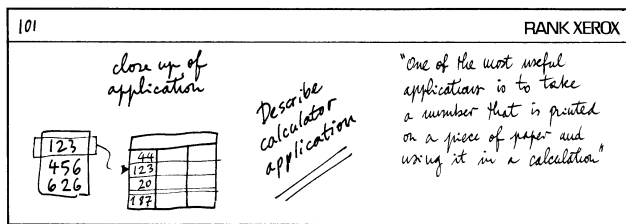 101
RANK XEROX
close up of
application
123
456
626
44
123
20
187
Describe
calculator
application
"One of the most useful
applications is to take
a number that is printed
on a piece of paper and
using it in a calculation"